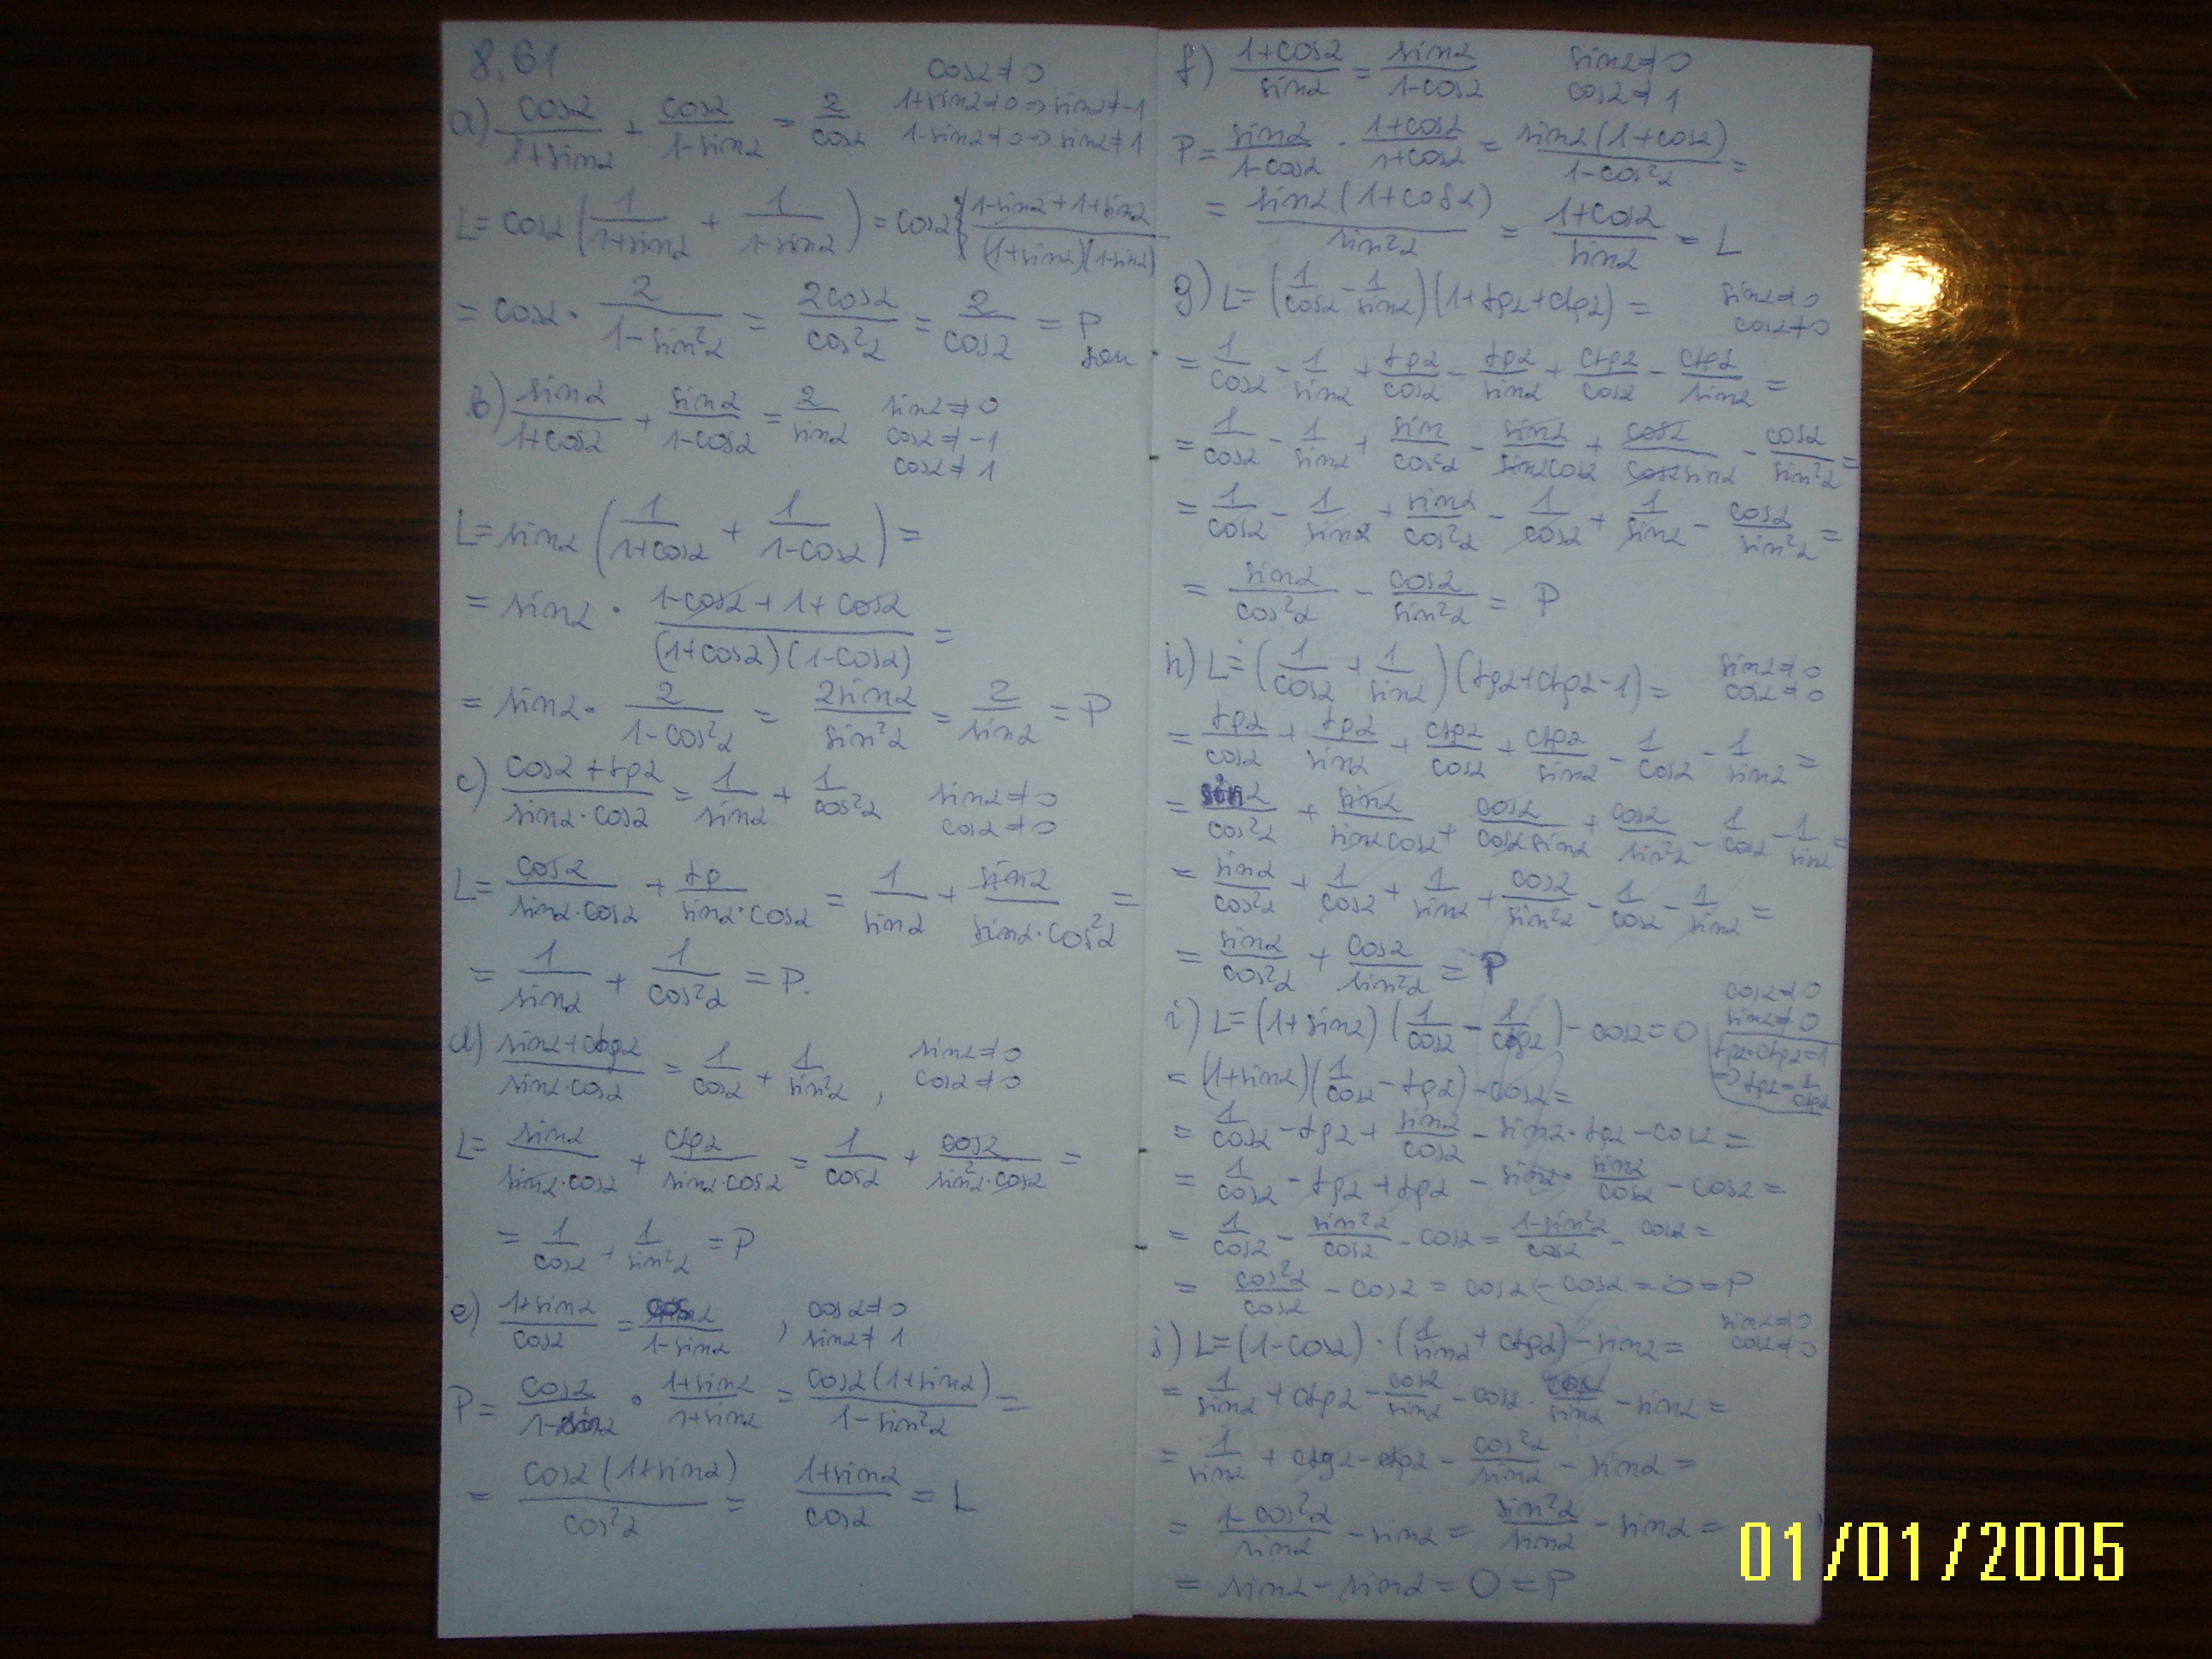 8.61
a) cosα/(1+sinα) + cosα/(1-sinα) = 2/cosα
cosα≠0
1+sinα≠0 => sinα≠-1
1-sinα≠0 => sinα≠1
L= cosα (1/(1+sinα) + 1/(1-sinα)) = cosα (1-sinα+1+sinα)/((1+sinα)(1-sinα))
= cosα · 2/(1-sin²α) = 2cosα/cos²α = 2/cosα = P
b) sinα/(1+cosα) + sinα/(1-cosα) = 2/sinα
sinα≠0
cosα≠-1
cosα≠1
L= sinα (1/(1+cosα) + 1/(1-cosα)) =
= sinα · (1-cosα+1+cosα)/((1+cosα)(1-cosα)) =
= sinα · 2/(1-cos²α) = 2sinα/sin²α = 2/sinα = P
c) (cosα+tgα)/(sinα·cosα) = 1/sinα + 1/cos²α
sinα≠0
cosα≠0
L= cosα/(sinα·cosα) + tg/(sinα·cosα) = 1/sinα + sinα/(sinα·cos²α) =
= 1/sinα + 1/cos²α = P.
d) (sinα+ctgα)/(sinα·cosα) = 1/cosα + 1/sin²α ,
sinα≠0
cosα≠0
L= sinα/(sinα·cosα) + ctgα/(sinα·cosα) = 1/cosα + cosα/(sin²α·cosα) =
= 1/cosα + 1/sin²α = P
e) (1+sinα)/cosα = cosα/(1-sinα) ,
cosα≠0
sinα≠1
P= cosα/(1-sinα) · (1+sinα)/(1+sinα) = cosα(1+sinα)/(1-sin²α) =
= cosα(1+sinα)/cos²α = (1+sinα)/cosα = L
f) (1+cosα)/sinα = sinα/(1-cosα)
sinα≠0
cosα≠1
P= sinα/(1-cosα) · (1+cosα)/(1+cosα) = sinα(1+cosα)/(1-cos²α) =
= sinα(1+cosα)/sin²α = (1+cosα)/sinα = L
g) L= (1/cosα - 1/sinα)(1+tgα+ctgα) =
sinα≠0
cosα≠0
= 1/cosα - 1/sinα + tgα/cosα - tgα/sinα + ctgα/cosα - ctgα/sinα =
= 1/cosα - 1/sinα + sin/cos²α - sinα/(sinαcosα) + cosα/(cosαsinα) - cosα/sin²α =
= 1/cosα - 1/sinα + sinα/cos²α - 1/cosα + 1/sinα - cosα/sin²α =
= sinα/cos²α - cosα/sin²α = P
h) L= (1/cosα + 1/sinα)(tgα+ctgα-1) =
sinα≠0
cosα≠0
= tgα/cosα + tgα/sinα + ctgα/cosα + ctgα/sinα - 1/cosα - 1/sinα =
= sinα/cos²α + sinα/(sinαcosα) + cosα/(cosαsinα) + cosα/sin²α - 1/cosα - 1/sinα =
= sinα/cos²α + 1/cosα + 1/sinα + cosα/sin²α - 1/cosα - 1/sinα =
= sinα/cos²α + cosα/sin²α = P
i) L= (1+sinα)(1/cosα - 1/ctgα) - cosα = 0
cosα≠0
sinα≠0
tgα·ctgα=1
=> tgα=1/ctgα
= (1+sinα)(1/cosα - tgα) - cosα =
= 1/cosα - tgα + sinα/cosα - sinα·tgα - cosα =
= 1/cosα - tgα + tgα - sinα· sinα/cosα - cosα =
= 1/cosα - sin²α/cosα - cosα = (1-sin²α)/cosα - cosα =
= cos²α/cosα - cosα = cosα - cosα = 0 = P
j) L= (1-cosα)·(1/sinα + ctgα) - sinα =
sinα≠0
cosα≠0
= 1/sinα + ctgα - cosα/sinα - cosα· cosα/sinα - sinα =
= 1/sinα + ctgα - ctgα - cos²α/sinα - sinα =
= (1-cos²α)/sinα - sinα = sin²α/sinα - sinα =
= sinα - sinα = 0 = P
01/01/2005